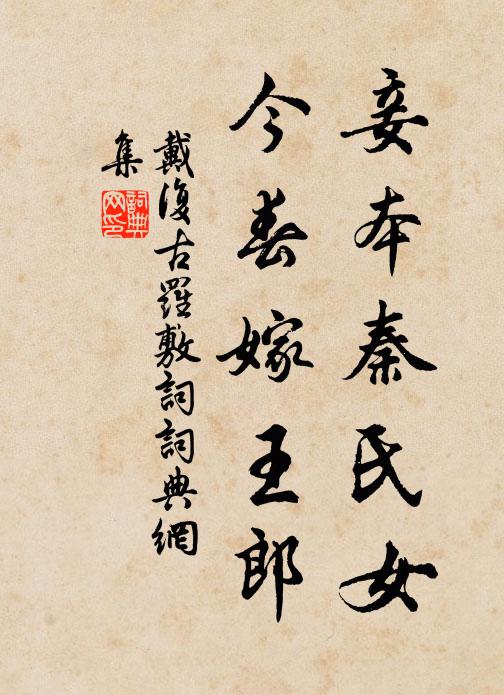 妾本秦氏女
今春嫁王郎
戴復古羅敷詞詞典網
集
詞典網印